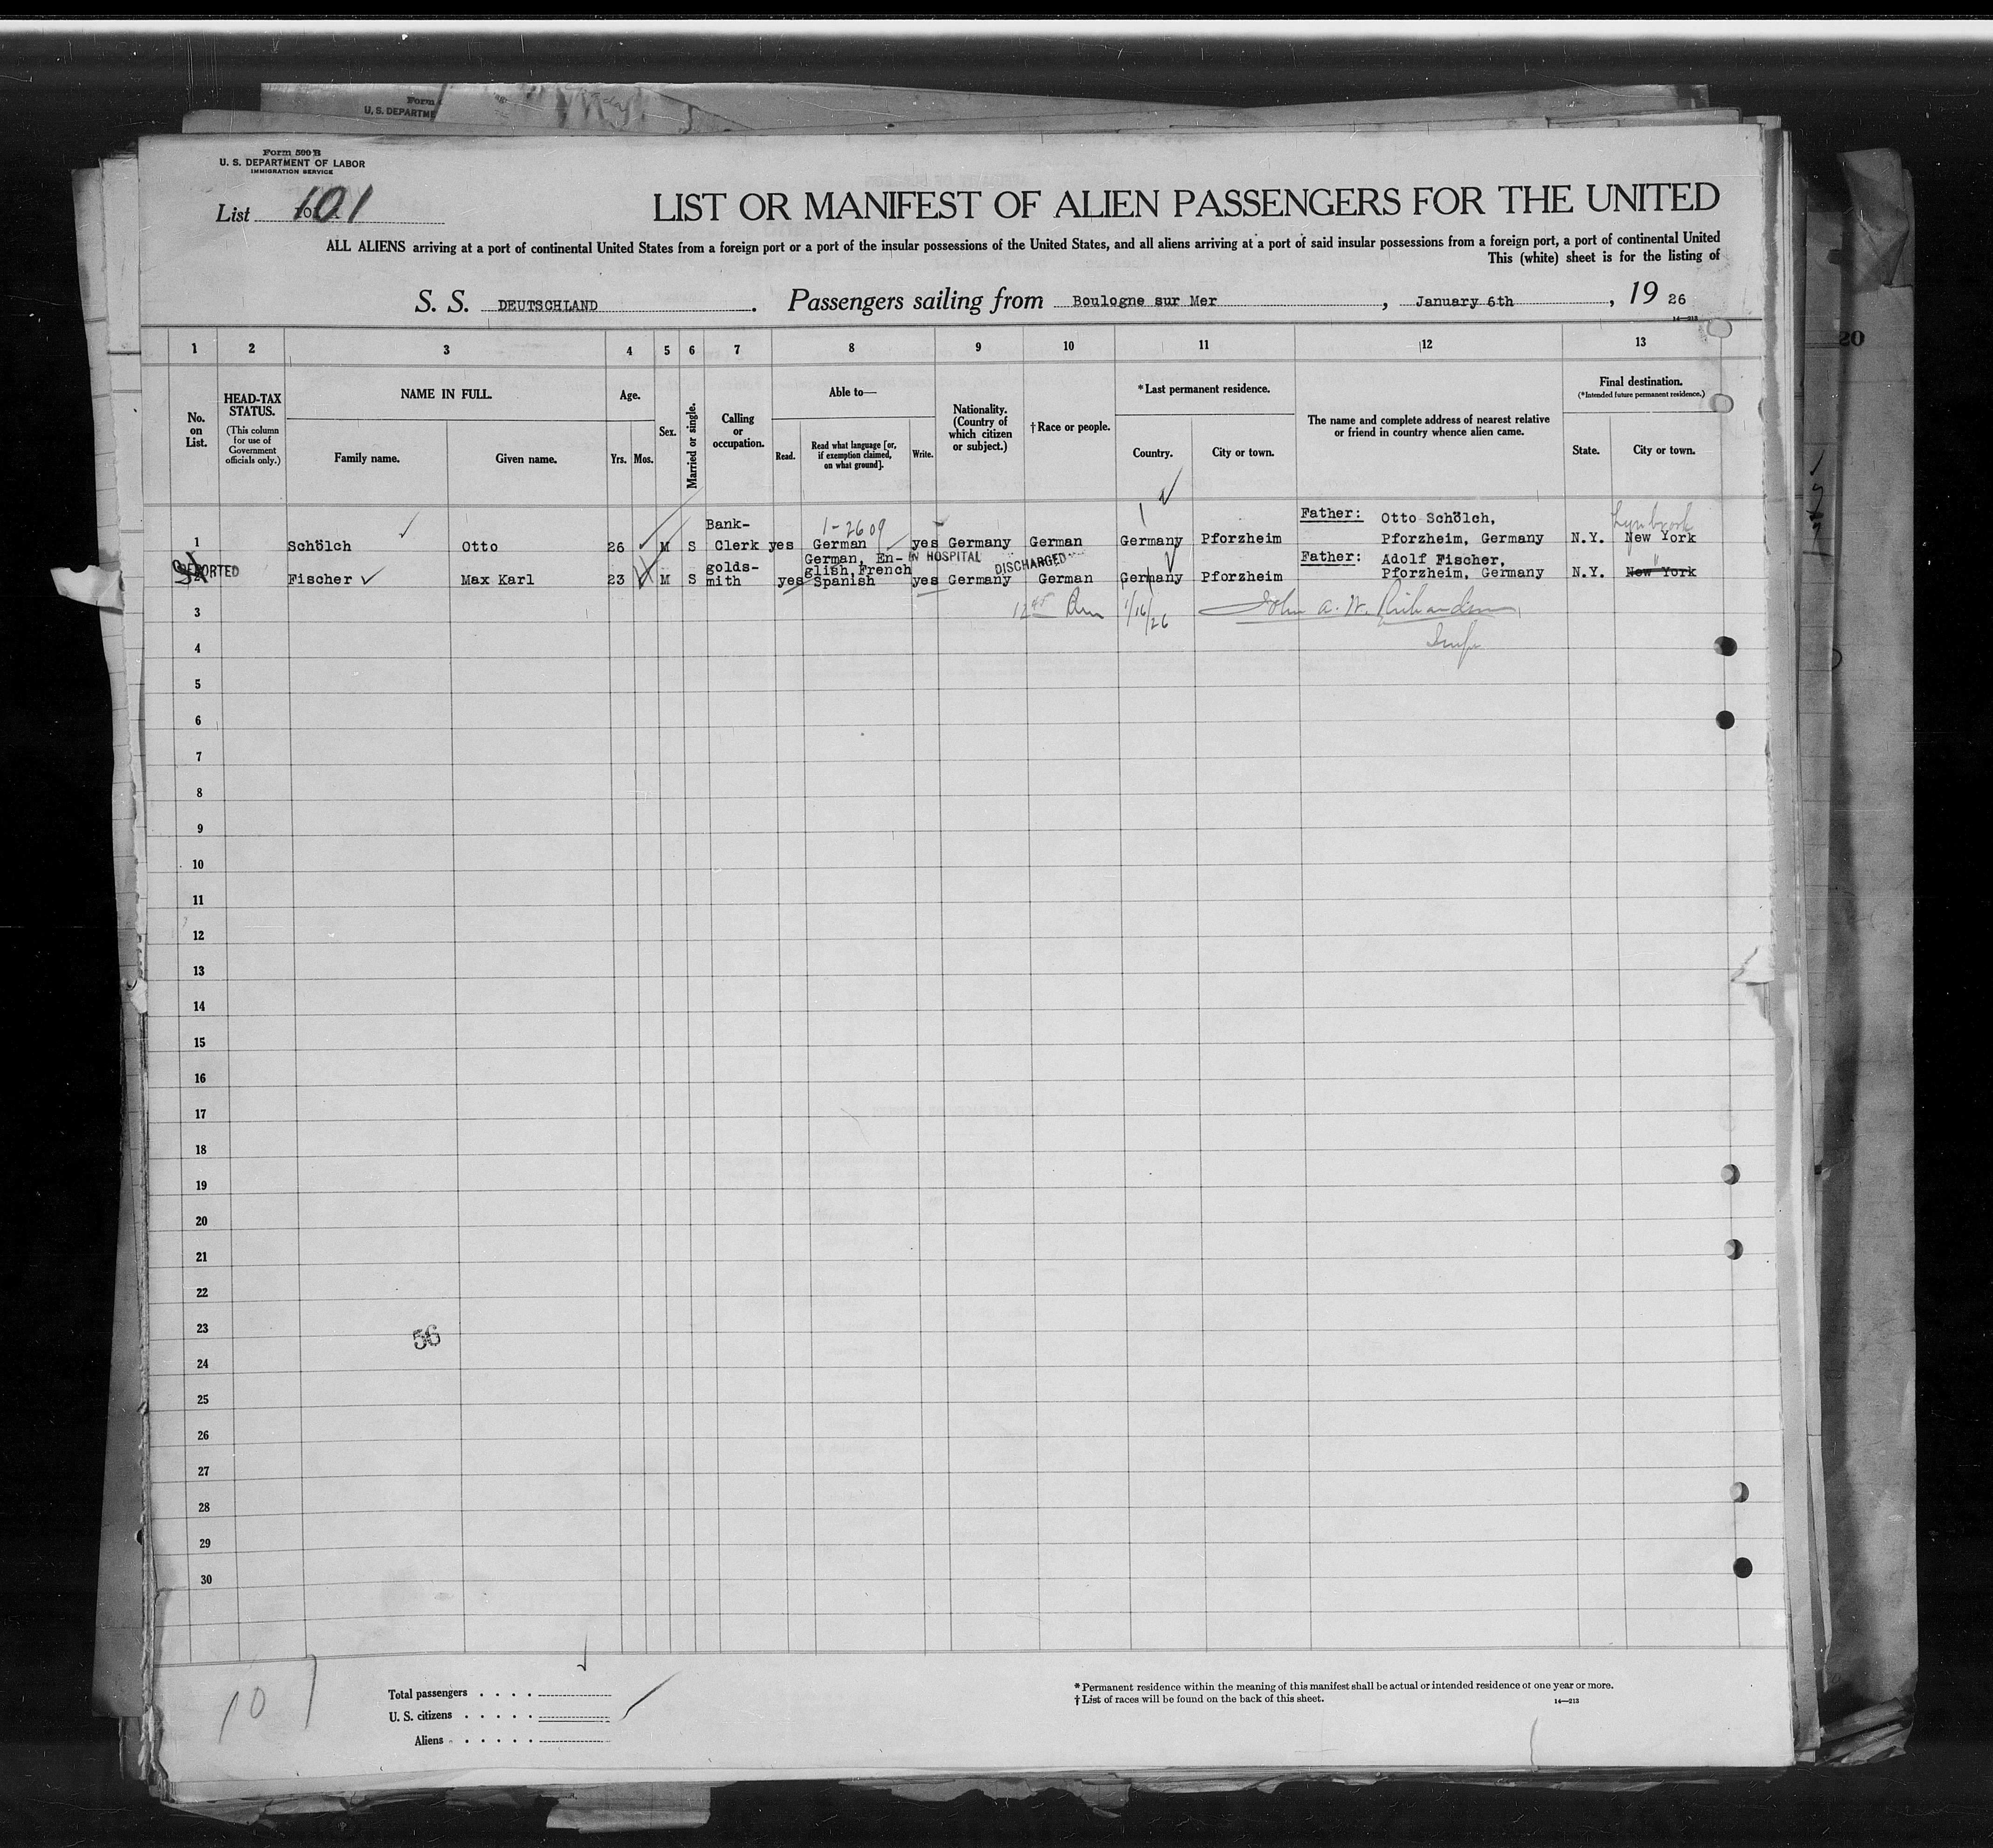 Form
U. S. DEPARTME
Form 500 B
U. S. DEPARTMENT OF LABOR
IMMIGRATION SERVICE
List 101
LIST OR MANIFEST OF ALIEN PASSENGERS FOR THE UNITED
ALL ALIENS arriving at a port of continental United States from a foreign port or a port of the insular possessions of the United States, and all aliens arriving at a port of said insular possessions from a foreign port, a port of continental United
This (white) sheet is for the listing of
S. S. DEUTSCHLAND. Passengers sailing from Boulogne sur Mer, January 6th, 19 26
14—213
1 2 3 4 5 6 7 8 9 10 11 12 13
No. on List.
HEAD-TAX STATUS.
(This column for use of Government officials only.)
NAME IN FULL.
Family name. Given name.
Age.
Yrs. Mos.
Sex.
Married or single.
Calling or occupation.
Able to—
Read. Read what language [or, if exemption claimed, on what ground]. Write.
Nationality. (Country of which citizen or subject.)
†Race or people.
*Last permanent residence.
Country. City or town.
The name and complete address of nearest relative or friend in country whence alien came.
Final destination.
(*Intended future permanent residence.)
State. City or town.
Bank- 1-2609 Father: Otto Schölch, Lynbrook
1 Schölch Otto 26 M S Clerk yes German yes Germany German Germany Pforzheim Pforzheim, Germany N.Y. New York
DEPORTED golds- German, En- IN HOSPITAL DISCHARGED Father: Adolf Fischer, "
glish, French
Fischer Max Karl 23 M S mith yes Spanish yes Germany German Germany Pforzheim Pforzheim, Germany N.Y. New York
3 1/16/26 John A. W. Richardson
4
5
6
7
8
9
10
11
12
13
14
15
16
17
18
19
20
21
22
23
56
24
25
26
27
28
29
30
10
Total passengers
U. S. citizens
Aliens
*Permanent residence within the meaning of this manifest shall be actual or intended residence of one year or more.
†List of races will be found on the back of this sheet. 14—213
20